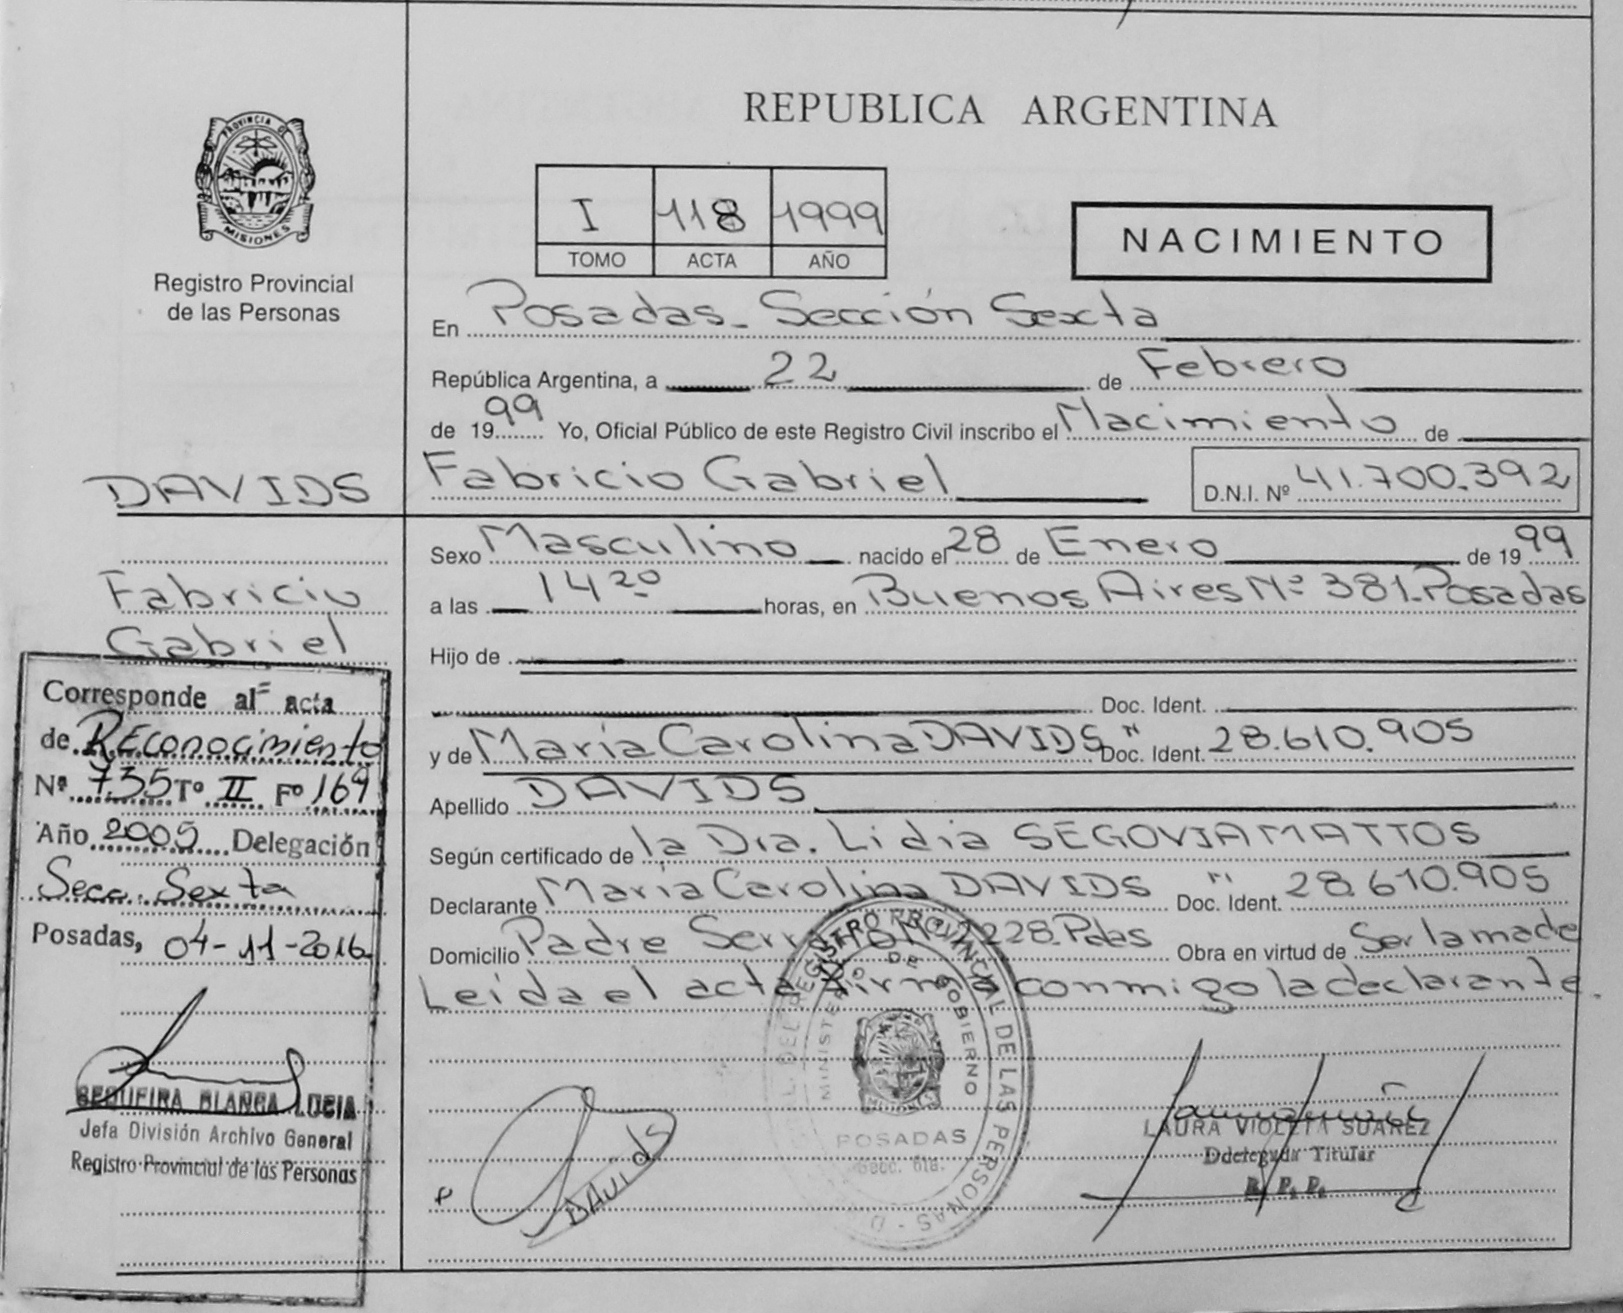 REPUBLICA ARGENTINA
PROVINCIA DE
MISIONES
Registro Provincial
de las Personas
I 118 1999
TOMO ACTA AÑO
NACIMIENTO
En Posadas - Sección Sexta
República Argentina, a 22 de Febrero
de 1999 Yo, Oficial Público de este Registro Civil inscribo el Nacimiento de
Fabricio Gabriel D.N.I. Nº 41.700.392
Sexo Masculino nacido el 28 de Enero de 1999
a las 14 20 horas, en Buenos Aires Nº 381 - Posadas
Hijo de
Doc. Ident.
y de María Carolina DAVIDS Doc. Ident. 28.610.905
Apellido DAVIDS
Según certificado de la Dra. Lidia SEGOVIA MATTOS
Declarante María Carolina DAVIDS Doc. Ident. 28.610.905
Domicilio Padre 228 Pdas Obra en virtud de Ser la madre
Leída el acta firma conmigo la declarante.
DAVIDS
Fabricio
Gabriel
Corresponde al acta
de REconocimiento
Nº 735 Tº II Fº 169
Año 2005 Delegación
Secc. Sexta
Posadas, 04-11-2016
SEQUEIRA BLANCA LUCIA
Jefa División Archivo General
Registro Provincial de las Personas
REGISTRO PROVINCIAL DE LAS PERSONAS
MINISTERIO DE GOBIERNO
MISIONES
POSADAS
Secc. 6ta.
P
DAVIDS
LAURA VIOLETA SUAREZ
Delegada Titular
R. P. P.